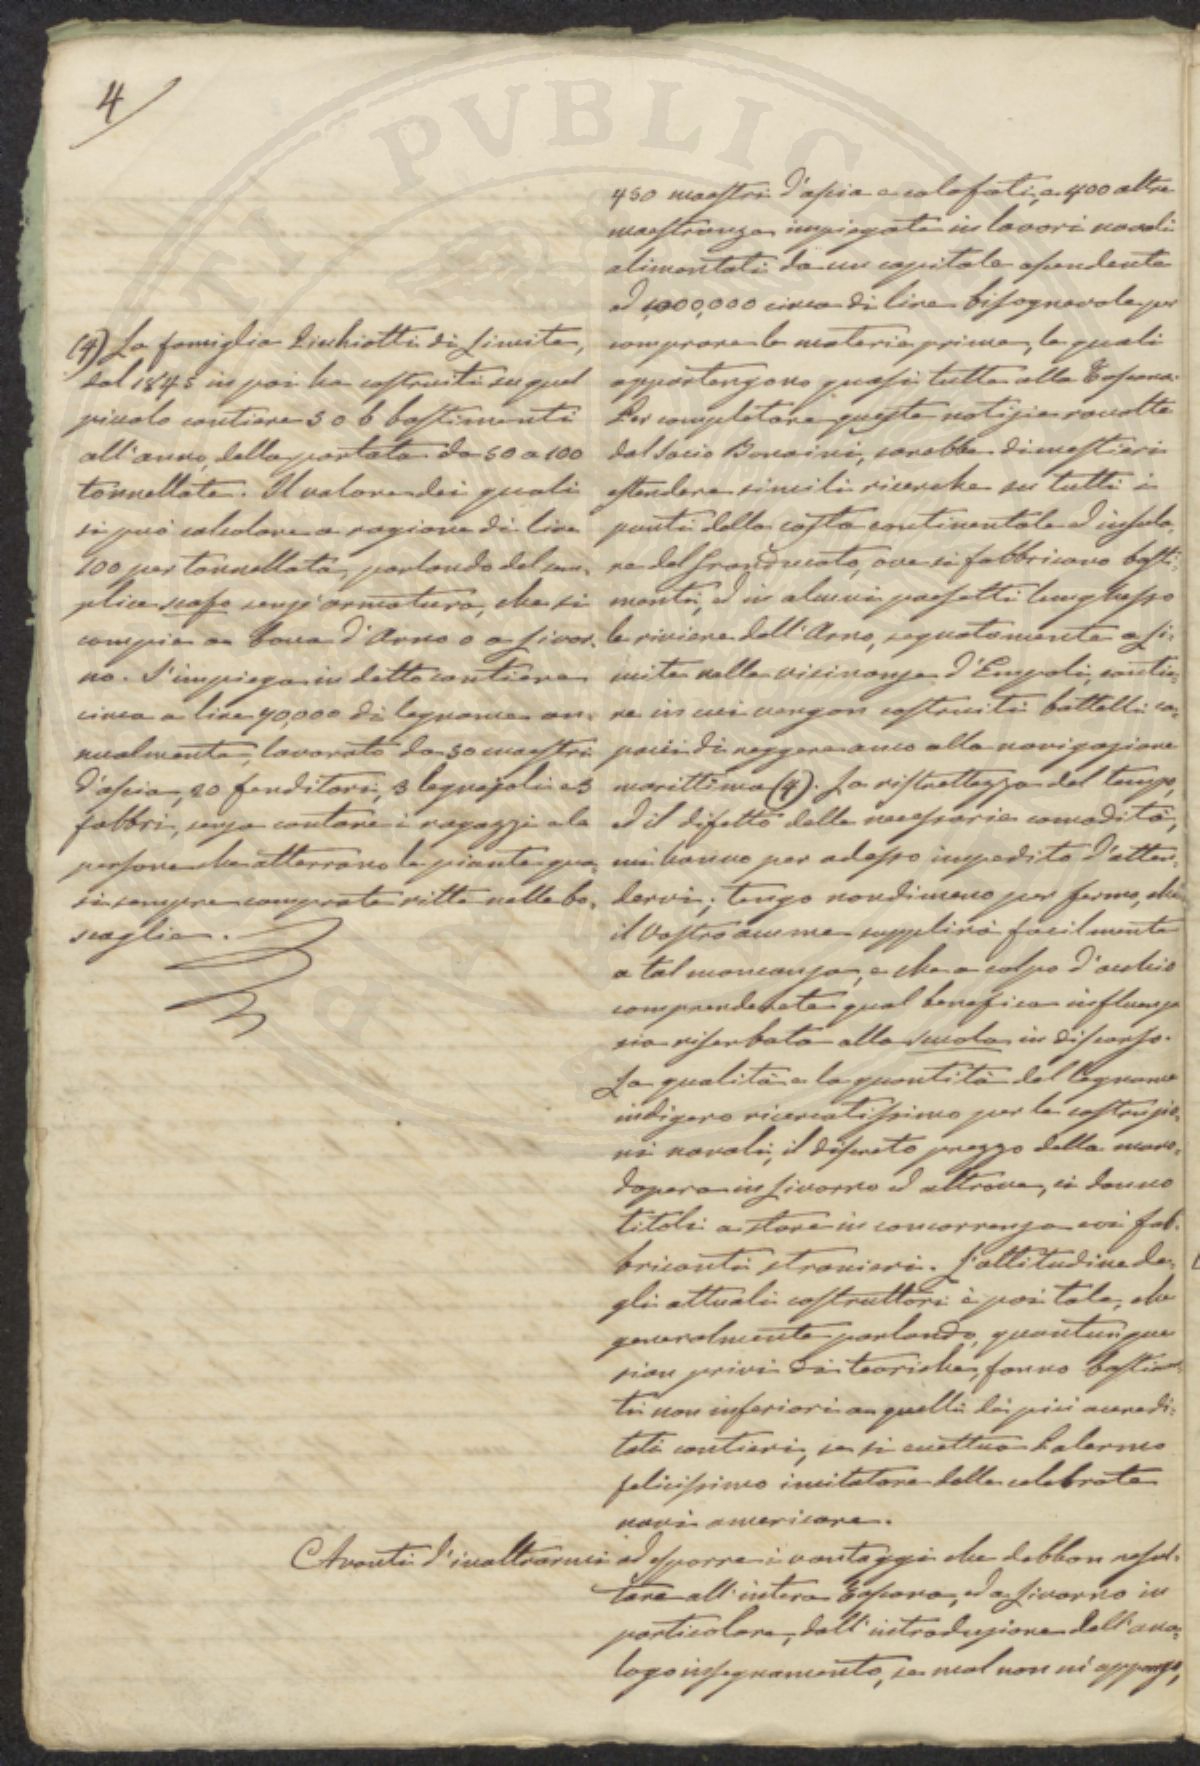 4
(4) La famiglia Picchiotti di Limite,
dal 1845 in poi ha costruiti in quel
piccolo cantiere 5 o 6 bastimenti
all'anno, della portata da 50 a 100
tonnellate. Il valore dei quali
si può calcolare a ragione di lire
100 per tonnellata, parlando del sem-
plice scafo senz'armatura, che si
compie a bocca d'Arno o a Livor-
no. S'impiega in detto cantiere
circa a lire 40,000 di legname an-
nualmente, lavorato da 30 maestri
d'ascia, 20 fenditori, 3 legnajoli e 3
fabbri, senza contare i ragazzi e le
persone che atterrano le piante qua-
si sempre comprate ritte nelle bo-
scaglie.
450 maestri d'ascia e calafati, e 400 altre
maestranze impiegate in lavori navali
alimentati da un capitale ascendente
ad 1,000,000 circa di lire bisognevole per
comprare le materie prime, le quali
appartengono quasi tutte alla Toscana.
Per completare queste notizie raccolte
dal Socio Bonaini, sarebbe di mestieri
estendere simili ricerche su tutti i
punti della costa continentale ed insula-
re del Granducato, ove si fabbricano basti-
menti, ed in alcuni paesetti lunghesso
le riviere dell'Arno, segnatamente a Li-
mite nelle vicinanze d'Empoli, cantie-
re in cui vengon costruiti battelli ca-
paci di reggere anco alla navigazione
marittima (4). La ristrettezza del tempo,
ed il difetto delle necessarie comodità,
mi hanno per adesso impedito d'atten-
dervi; tengo nondimeno per fermo, che
il Vostro acume supplirà facilmente
a tal mancanza, e che a colpo d'occhio
comprenderete qual benefica influenza
sia riserbata alla scuola in discorso.
La qualità e la quantità del legname
indigeno ricercatissimo per le costruzio-
ni navali, il discreto prezzo della mano-
dopera in Livorno ed altrove, ci danno
titoli a stare in concorrenza coi fab-
bricanti stranieri. L'attitudine de-
gli attuali costruttori è poi tale, che
generalmente parlando, quantunque
sian privi di teoriche, fanno bastimen-
ti non inferiori a quelli dei più accredi-
tati cantieri, se si eccettua Palermo
felicissimo imitatore delle celebrate
navi americane.
Avanti d'inoltrarmi ad esporre i vantaggi che debbon resul-
tare all'intera Toscana, ed a Livorno in
particolare, dall'introduzione dell'ana-
logo insegnamento, se mal non m'appongo,